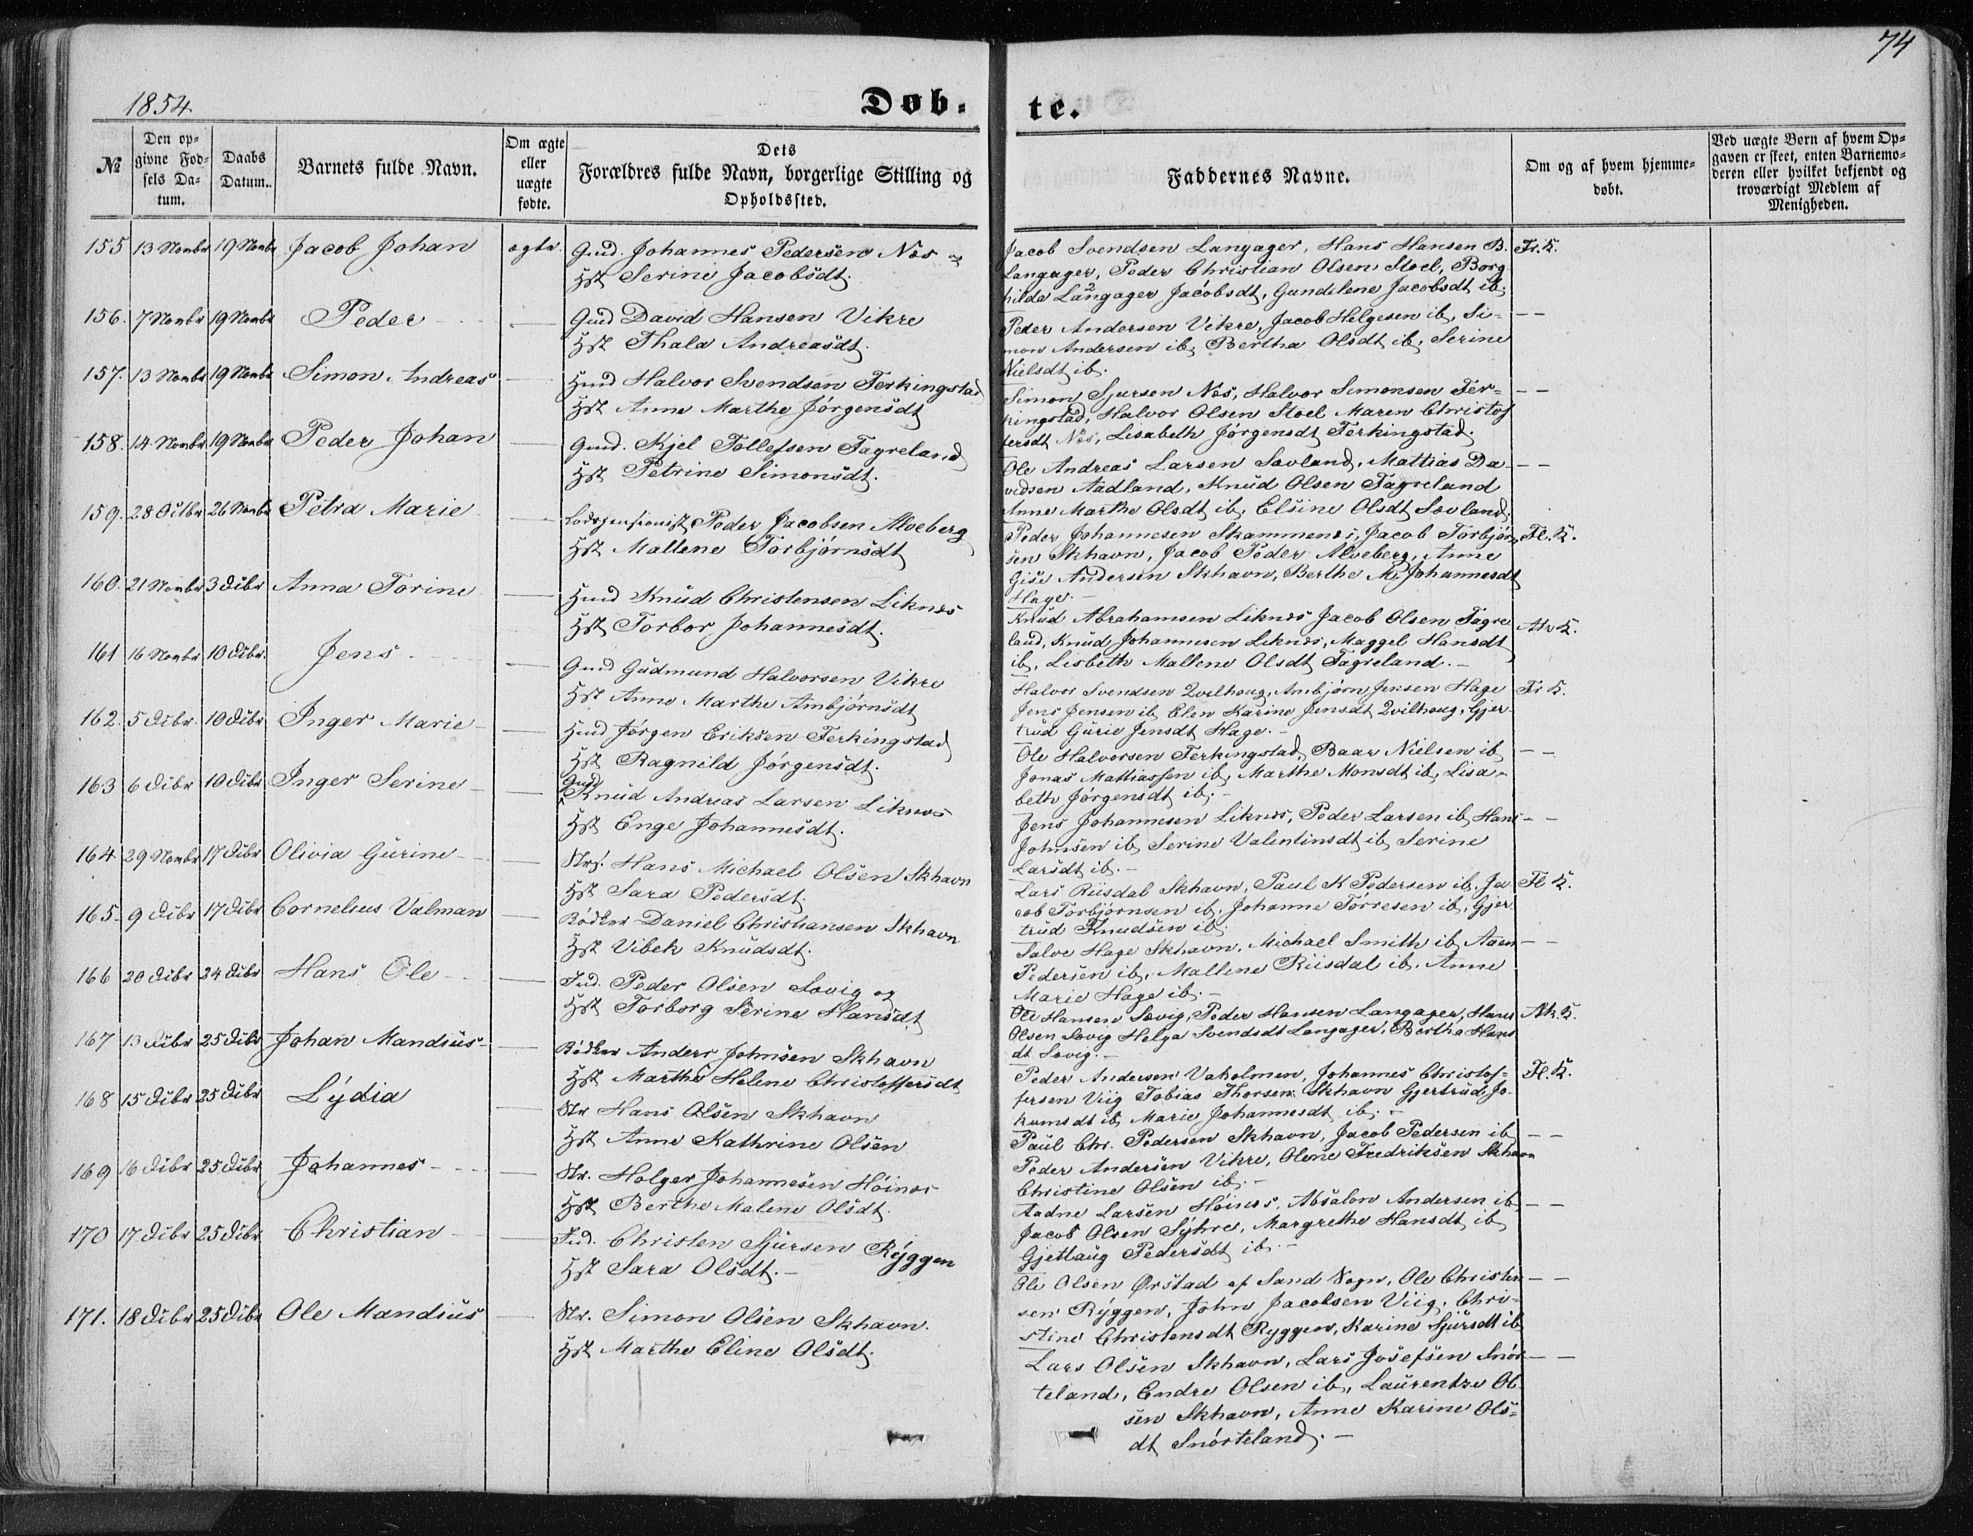 74
1854.
Døb-
te.
№
Den op-
givne Fød-
sels Da-
tum.
Daabs
Datum.
Barnets fulde Navn.
Om ægte
eller
uægte
fødte.
Dets
Forældres fulde Navn, borgerlige Stilling og
Opholdssted.
Faddernes Navne.
Om og af hvem hjemme-
døbt.
Ved uægte Børn af hvem Op-
gaven er skeet, enten Barnemo-
deren eller hvilket bekjendt og
troværdigt Medlem af
Menigheden.
155 13 Novbr 19 Novbr Jacob Johan ægte. Gmd Johannes Pedersen Nes
Hst Serine Jacobsdt.
Jacob Svendsen Langager, Hans Hansen B. Fr. K.
Langager, Peder Christian Olsen Stoel, Borg
hilde Langager Jacobsdt, Gundelene Jacobsdt ib.
156. 7 Novbr 19 Novbr Peder — Gmd David Hansen Vikre
Hst Thala Andreasdt.
Peder Andersen Vikre, Jacob Helgesen ib, Si- — —
mon Andersen ib, Bertha Olsdt ib, Serine
Nielsdt ib.
157. 13 Novbr 19 Novbr Simon Andreas — Hmd Halvor Svendsen Ferkingstad
Hst Anne Marthe Jørgensdt
Simon Sjursen Nes, Halvor Simonsen Fer- — —
kingstad, Halvor Olsen Stoel Maren Christof
fersdt Nes, Lisabeth Jørgensdt Ferkingstad.
158. 14 Novbr 19 Novbr Peder Johan — Gmd. Kjel Tollefsen Fagreland
Hst Petrine Simonsdt.
Ole Andreas Larsen Sævland, Mattias Da- — —
vidsen Aadland, Knud Olsen Fagreland
Anne Marthe Olsdt ib, Elsine Olsdt Sævland.
159. 28 26 Novbr Petra Marie — Lodspensionist Peder Jacobsen Alveberg
Hst Mallene Torbjørnsdt
Peder Johannesen Jacob Torbjørn Fl. K.
sen Skhavn, Jacob Peder Alveberg, Anne
Gise Andersen Skhavn, Berthe M. Johannesdt
Hage.
160. 21 Novbr 3 Dcbr Anna Torine — Hmd Knud Christensen Liknes
Hst Torbor Johannesdt.
Knud Abrahamsen Liknes Jacob Olsen Fagre K.
land, Knud Johannesen Liknes, Maggel Hansdt
ib, Lisbeth Mallene Olsdt Fagreland.
161 16 Novbr 10 Dcbr. Jens — Gmd Gudmund Halvorsen Vikre
Hst Anne Marthe Ambjørnsdt
Halvor Svendsen Qvilhoug, Ambjørn Jensen Hage Fr K.
Jens Jensen ib Elen Karine Jensdt Qvilhoug, Gjer-
trud Gurie Jensdt Hage.
162. 5 Dcbr. 10 Dcbr Inger Marie — Hmd Jørgen Eriksen Ferkingstad
Hst Ragnild Jørgensdt.
Ole Halvorsen Ferkingstad, Baar Nielsen ib — —
Jonas Mattiassen ib, Marthe Monsdt ib, Lisa-
beth Jørgensdt ib.
163 6 Dcbr 10 Dcbr Inger Serine — Gmd
Knud Andreas Larsen Liknes
Hst Enge Johannesdt.
Jens Johannesen Liknes, Peder Larsen ib, Hans — —
Johnsen ib Serine Valentinsdt ib, Serine
Larsdt ib.
164. 29 Novbr 17 Dcbr Olivia Gurine — Strs. Hans Michael Olsen Skhavn
Hst Sara Pedersdt.
Lars Riisdal Skhavn, Paul K Pedersen ib, Ja Fl K.
cob Torbjørnsen ib, Johanne Torresen ib, Gjer
trud Knudsen ib.
165. 9 Dcbr 17 Dcbr Cornelius Valman — Bødker Daniel Christiansen Skhavn
Hst Vibek Knudsdt.
Salve Hage Skhavn, Michael Smith ib, Aaen — —
Pedersen ib, Mallene Riisdal ib, Anne
Marie Hage ib.
166 20 Dcbr 24 Dcbr Hans Ole — Ind. Peder Olsen Sævig og
Hst Torborg Serine Hansdt
Ole Hansen Sævig, Peder Hansen Langager, Hans K.
Olsen Sævig Helga Svendsdt Langager, Bertha Hans
dt Sævig.
167 13 Dcbr 25 Dcbr Johan Mandius — Bødker Anders Johnsen Skhavn
Hst Marthe Helene Christoffersdt
Peder Andersen Vaholmen, Johannes Christof- Fl. K.
fersen Viig Tobias Thorsen Skhavn Gjertrud Jo-
kumsdt ib, Marie Johannesdt ib.
168 15 Dcbr 25 Dcbr Lydia — Str Hans Olsen Skhavn
Hst Anne Kathrine Olsen
Paul Chr. Pedersen Skhavn, Jacob Pedersen ib — —
Peder Andersen Vikre, Olene Fredriksen Skhavn
Christine Olsen ib.
169 16 Dcbr 25 Dcbr Johannes — Str. Holger Johannesen Høines
Hst Berthe Malene Olsdt.
Aadne Larsen Høines, Absalon Andersen ib — —
Jacob Olsen Syhre, Margrethe Hansdt ib
Gjetlaug Pedersdt ib.
170 17 Dcbr 25 Dcbr Christian — Ind. Christen Sjursen Ryggen
Hst Sara Olsdt.
Ole Olsen Ørstad af Sand Sogn, Ole Christen — —
sen Ryggen, John Jacobsen Viig, Chri-
stine Christensdt Ryggen, Karine Sjursdt ib
171. 18 Dcbr 25 Dcbr Ole Mandius — Str. Simon Olsen Skhavn.
Hst Marthe Eline Olsdt.
Lars Olsen Skhavn, Lars Josefsen Snør — —
teland, Endre Olsen ib, Laurentze Ol-
sen Skhavn, Anne Karine Ols-
dt Snørteland.